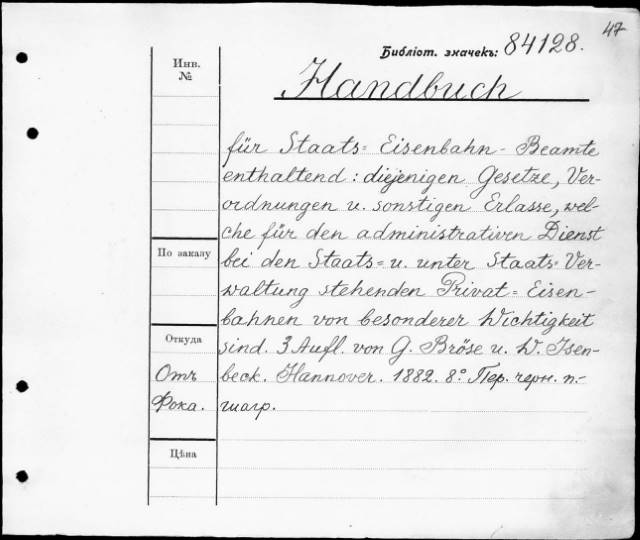 47
Библіот. значекъ: 84128.
Инв.
№
Handbuch
für Staats= Eisenbahn - Beamte
enthaltend: diejenigen Gesetze, Ver-
ordnungen u. sonstigen Erlasse, wel-
che für den administrativen Dienst
По заказу
bei den Staats= u. unter Staats= Ver-
waltung stehenden Privat= Eisen-
bahnen von besonderer Wichtigkeit
Откуда
sind. 3 Aufl. von G. Bröse u. W. Isen-
Отъ
beck. Hannover. 1882. 8º Пер. черн. п.-
Фока.
шагр.
Цѣна